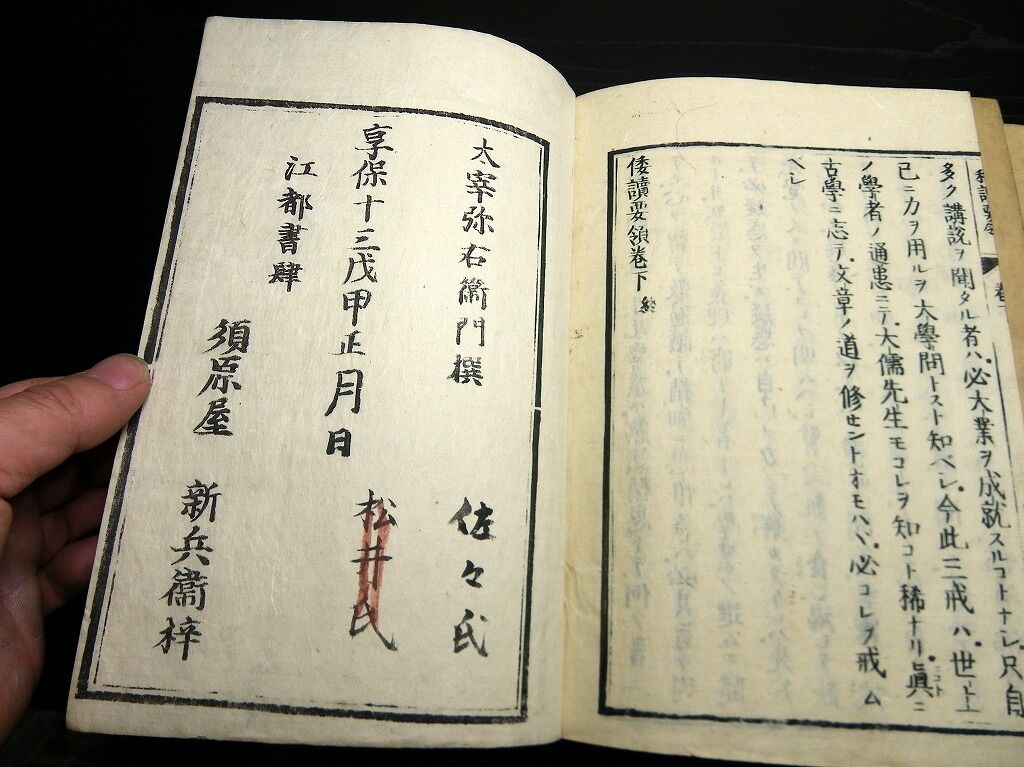 多ク講説ヲ聞タル者ハ必大業ヲ成就スルコトナシ只自
己ニ力ヲ用ルヲ大學問トスト知ベシ今此三戒ハ世上
ノ學者ノ通患ニテ大儒先生モコレヲ知コト稀ナリ眞ニ
古學ニ志テ文章ノ道ヲ修セントオモハヾ必コレヲ戒ム
ベシ
倭讀要領巻下 終
太宰弥右衞門撰
佐々氏
享保十三戊申正月日
松井氏
江都書肆
須原屋 新兵衞梓